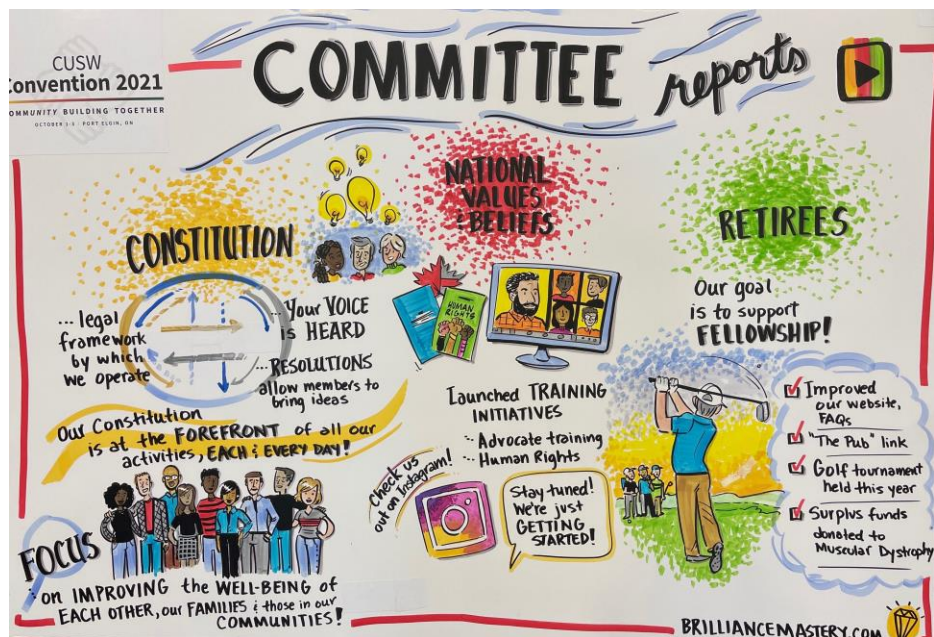 CUSW
Convention 2021
COMMUNITY BUILDING TOGETHER
OCTOBER 1-3 · PORT ELGIN, ON
COMMITTEE reports
CONSTITUTION
... legal
framework
by which
we operate
... Your VOICE
is HEARD
... RESOLUTIONS
allow members to
bring ideas
Our Constitution
is at the FOREFRONT of all our
activities, EACH & EVERY DAY!
FOCUS
on IMPROVING the WELL-BEING of
EACH OTHER, our FAMILIES & those in our
COMMUNITIES!
NATIONAL
VALUES
& BELIEFS
HUMAN
RIGHTS
Launched TRAINING
INITIATIVES
... Advocate training
... Human Rights
Check us
out on Instagram!
Stay tuned!
We're just
GETTING
STARTED!
RETIREES
Our goal
is to support
FELLOWSHIP!
Improved
our website,
FAQs
"The Pub" link
Golf tournament
held this year
Surplus funds
donated to
Muscular Dystrophy
BRILLIANCEMASTERY.COM